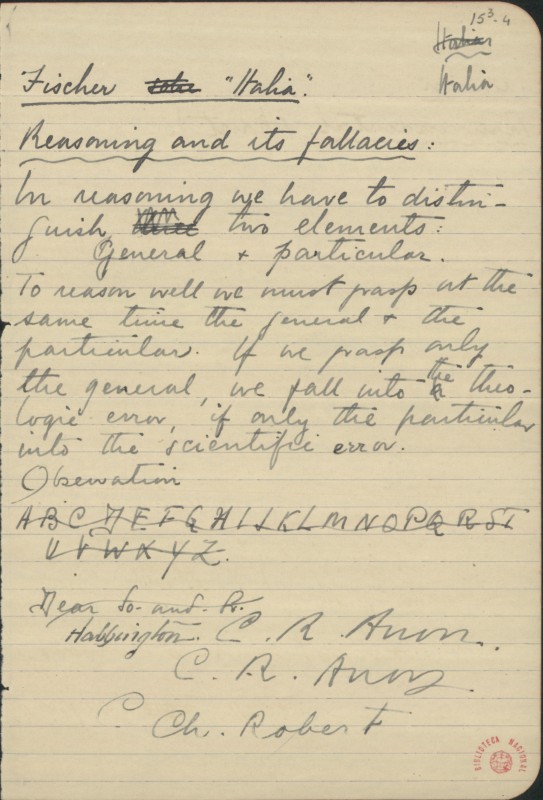 15³-4
Italia
Italia
Fischer "Italia".
Reasoning and its fallacies:
In reasoning we have to distin-
guish three two elements:
General & particular.
To reason well we must grasp at the
same time the general & the
particular. If we grasp only
the general, we fall into the theo-
logic error, if only the particular
into the scientific error.
Observation
A B C D E F G H I J K L M N O P Q R S T
U V W X Y Z.
Dear So-and-So.
C. R. Anon.
C. R. Anon.
C Ch. Robert
BIBLIOTECA NACIONAL